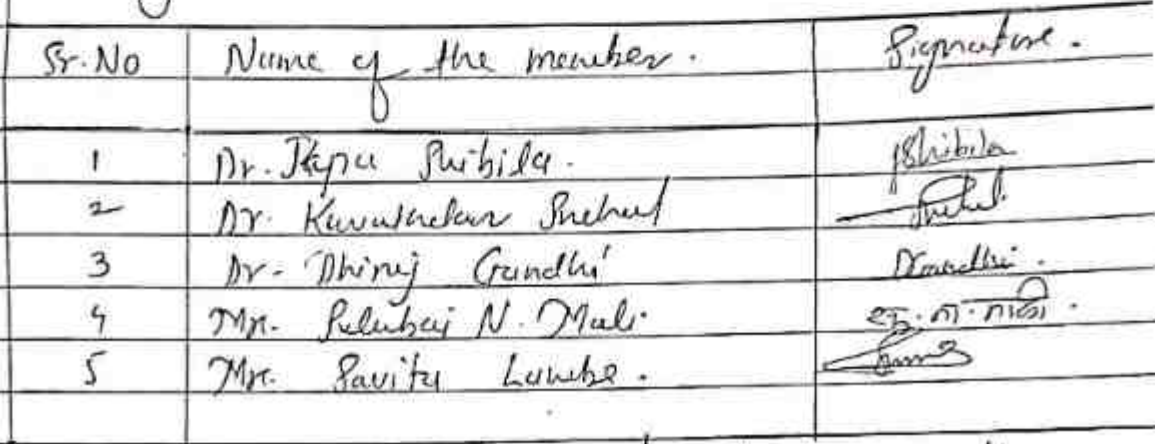 Sr. No Name of the member. Signature.
1 Dr. Japu Shibila. Shibila
2 Dr. Kavathekar Snehal Snehal
3 Dr. Dhiraj Gandhi DGandhi.
4 Mrs. N. Mali.
5 Mrs. Savita Lambe.